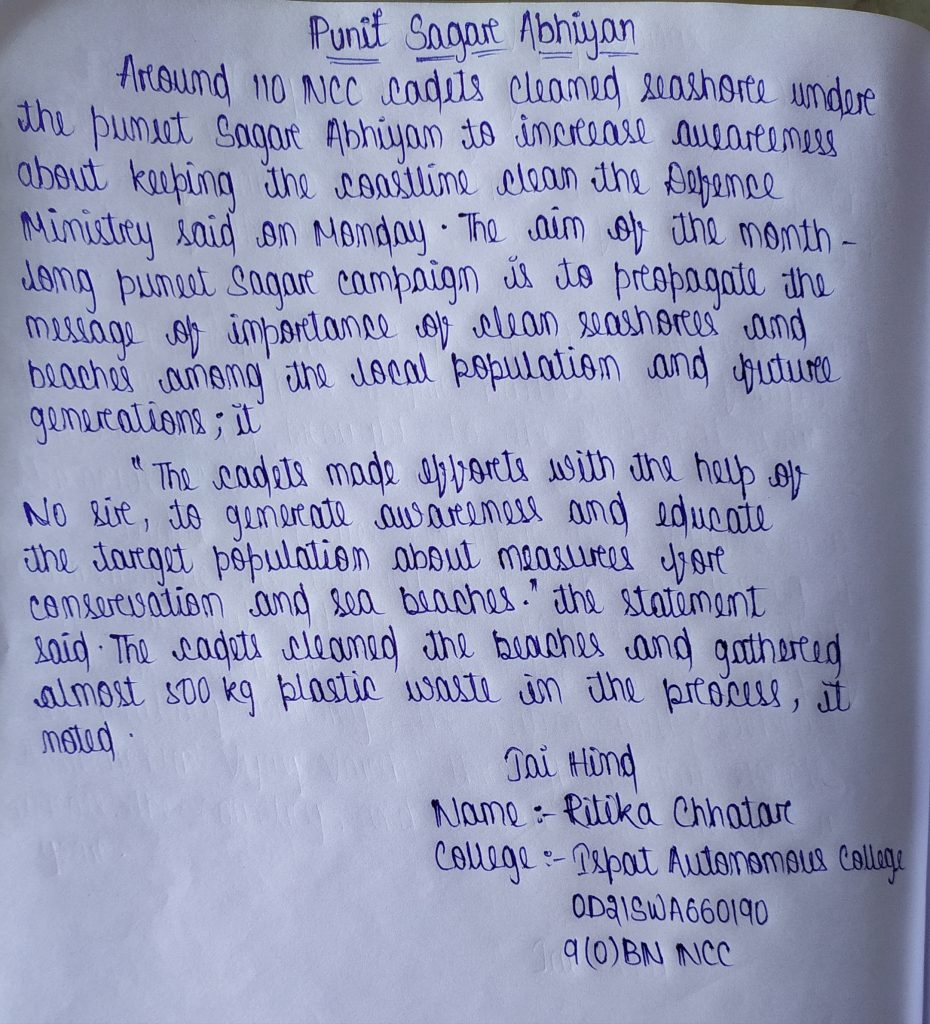 Punit Sagar Abhiyan
Around 110 NCC cadets cleaned seashore under
the puneet Sagar Abhiyan to increase awareness
about keeping the coastline clean the Defence
Ministry said on Monday. The aim of the month-
long puneet Sagar campaign is to propagate the
message of importance of clean seashores and
beaches among the local population and future
generations; it
"The cadets made efforts with the help of
No sir, to generate awareness and educate
the target population about measures for
conservation and sea beaches." the statement
said. The cadets cleaned the beaches and gathered
almost 500 kg plastic waste in the process, it
noted.
Jai Hind
Name :- Ritika Chhatar
College :- Ispat Autonomous College
OD21SWA660190
9(O)BN NCC